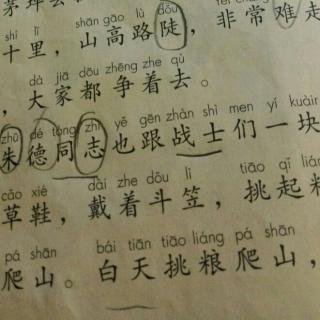 shí lǐ shān gāo lù dǒu
十里，山高路陡，非常难走
dà jiā dōu zhēng zhe qù
，大家都争着去。
zhū dé tóng zhì yě gēn zhàn shì men yí kuàir
朱德同志也跟战士们一块
cǎo xié dài zhe dǒu lì tiāo qǐ liáng
草鞋，戴着斗笠，挑起粮
pá shān bái tiān tiāo liáng pá shān
爬山。白天挑粮爬山，